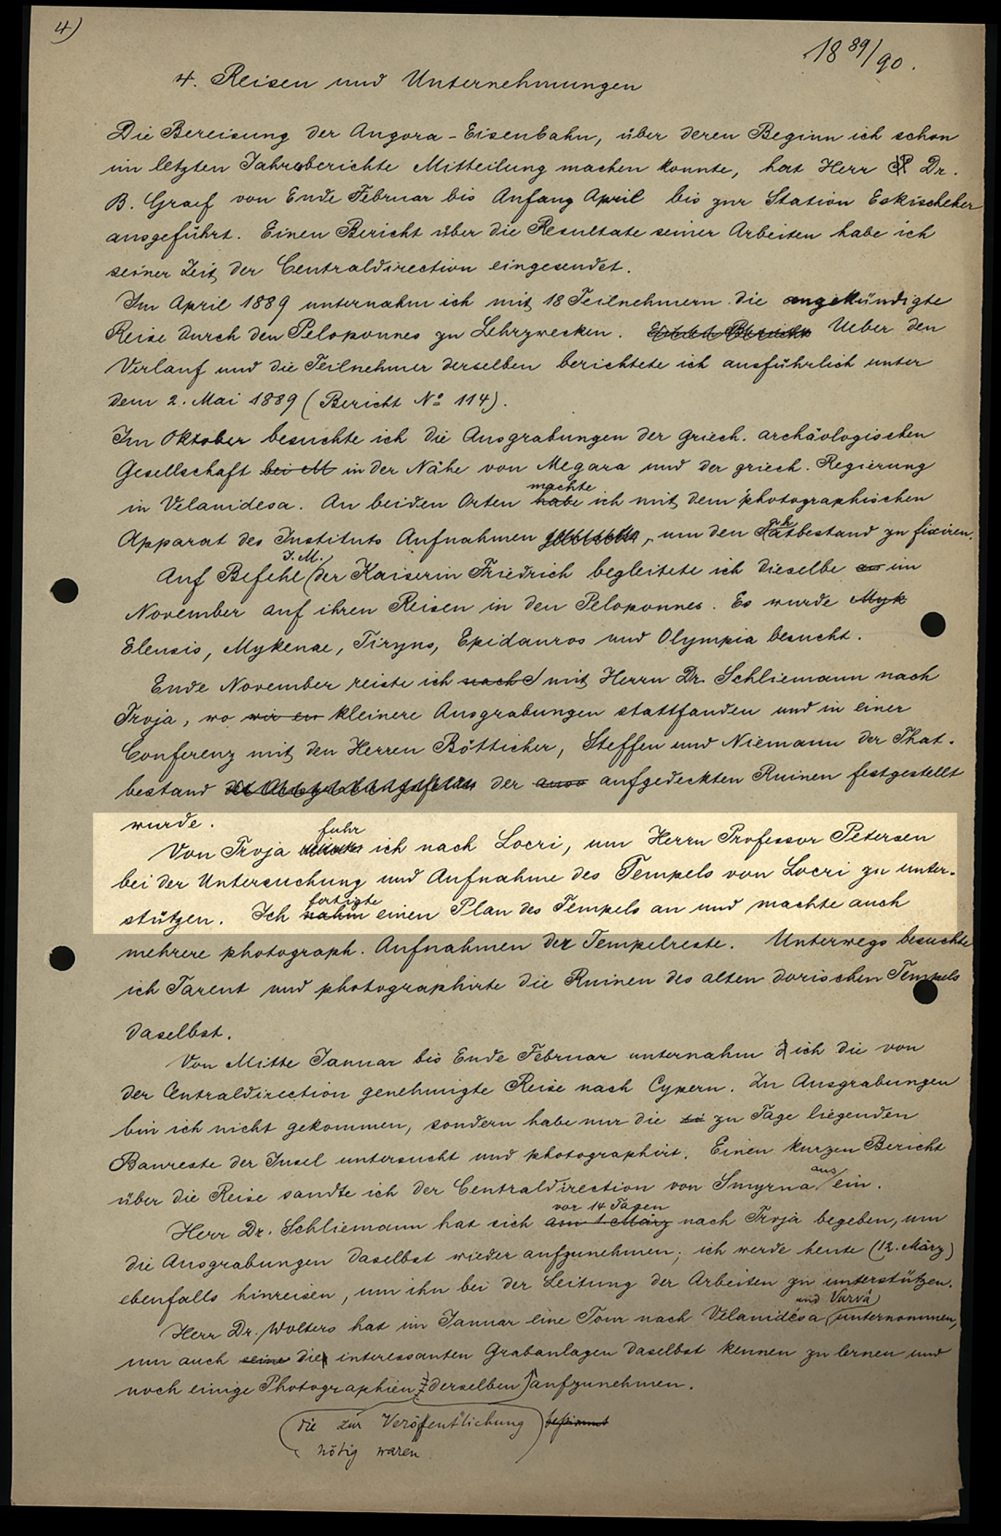 4)
1889/90.
4. Reisen und Unternehmungen
Die Bereisung der Angora-Eisenbahn, über deren Beginn ich schon
im letzten Jahresberichte Mitteilung machen konnte, hat Herr Dr.
B. Graef von Ende Februar bis Anfang April bis zur Station Eskischeher
ausgeführt. Einen Bericht über die Resultate seiner Arbeiten habe ich
seiner Zeit der Centraldirection eingesendet.
Im April 1889 unternahm ich mit 18 Teilnehmern die angekündigte
Reise durch den Peloponnes zu Lehrzwecken. Ueber den
Verlauf und die Teilnehmer derselben berichtete ich ausführlich unter
dem 2. Mai 1889 (Bericht No 114).
Im Oktober besuchte ich die Ausgrabungen der griech. archäologischen
Gesellschaft bei M in der Nähe von Megara und der griech. Regierung
machte
in Velanidesa. An beiden Orten habe ich mit dem photographischen
Apparat des Instituts Aufnahmen, um den Thatbestand zu fixiren.
I. M.
Auf Befehl der Kaiserin Friedrich begleitete ich dieselbe im
November auf ihren Reisen in den Peloponnes. Es wurde Myk
Eleusis, Mykenae, Tiryns, Epidauros und Olympia besucht.
Ende November reiste ich nach S mit Herrn Dr. Schliemann nach
Troja, wo wir en kleinere Ausgrabungen stattfanden und in einer
Conferenz mit den Herren Bötticher, Steffen und Niemann der That-
bestand der ausa aufgedeckten Ruinen festgestellt
wurde.
fuhr
Von Troja ich nach Locri, um Herrn Professor Petersen
bei der Untersuchung und Aufnahme des Tempels von Locri zu unter-
fertigte
stützen. Ich nahm einen Plan des Tempels an und machte auch
mehrere photograph. Aufnahmen der Tempelreste. Unterwegs besuchte
ich Tarent und photographirte die Ruinen des alten dorischen Tempels
daselbst.
Von Mitte Januar bis Ende Februar unternahm ich die von
der Centraldirection genehmigte Reise nach Cypern. Zu Ausgrabungen
bin ich nicht gekommen, sondern habe nur die zu Tage liegenden
Baureste der Insel untersucht und photographirt. Einen kurzen Bericht
aus
über die Reise sandte ich der Centraldirection von Smyrna ein.
vor 14 Tagen
Herr Dr. Schliemann hat sich am 1 März nach Troja begeben, um
die Ausgrabungen daselbst wieder aufzunehmen; ich werde heute (12. März)
ebenfalls hinreisen, um ihn bei der Leitung der Arbeiten zu unterstützen.
und Vurvá
Herr Dr. Wolters hat im Januar eine Tour nach Velanidésa unternommen,
um auch seine die interessanten Grabanlagen daselbst kennen zu lernen und
noch einige Photographien derselben aufzunehmen.
die zur Veröffentlichung bestimmt
nötig waren